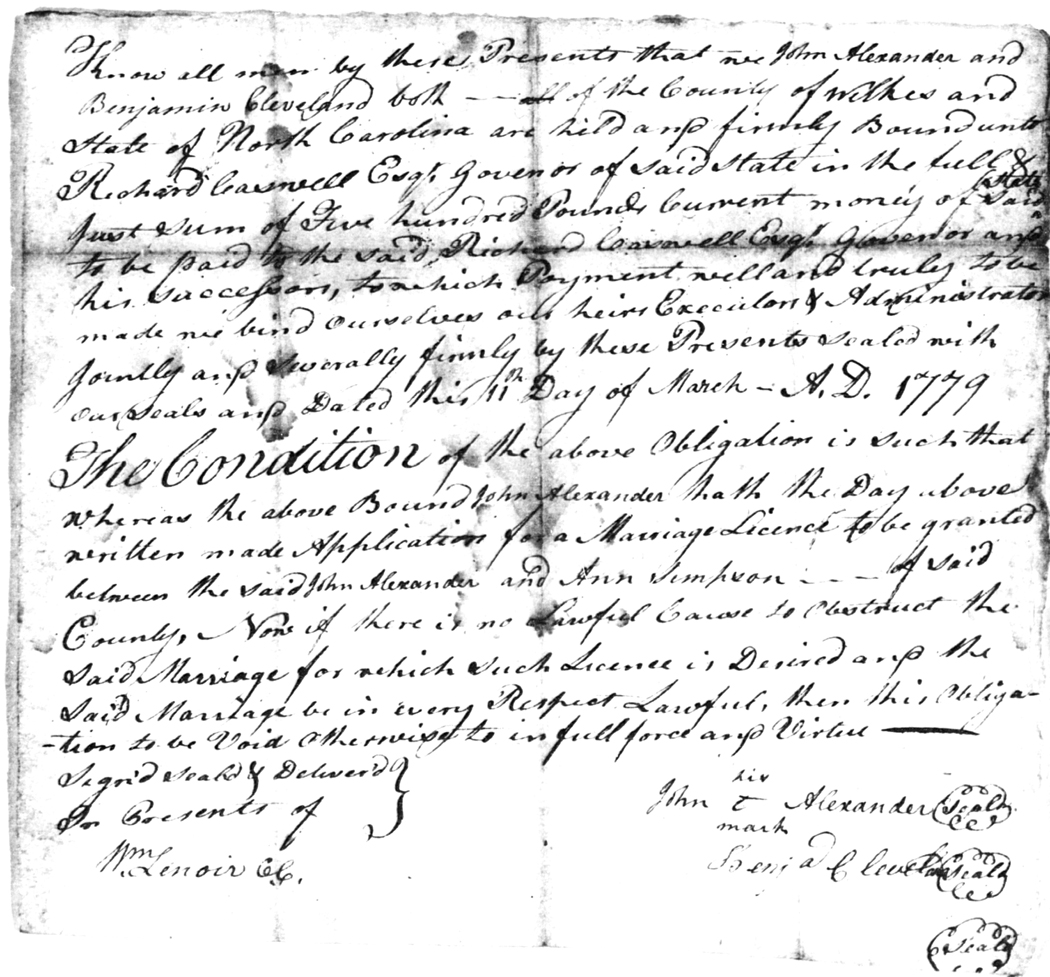 Know all men by these Presents that we John Alexander and
Benjamin Cleveland both — all of the County of Wilkes and
State of North Carolina are hild and firmly Bound unto
Richard Caswell Esqr. Govenor of said State in the full &
just sum of Five hundred Pounds Current money of said
State
to be paid to the said Richard Caswell Esqr. Governor and
his successors, to which Payment well and truly to be
made we bind ourselves our heirs Executors & Administrators
Jointly and Severally firmly by these Presents sealed with
our seals and Dated this 11th Day of March – A.D. 1779
The Condition of the above Obligation is such that
whereas the above Bound John Alexander hath the Day above
written made Application for a Marriage Licence to be granted
between the said John Alexander and Ann Simpson - - — of said
County, Now if there is no Lawful Cause to Obstruct the
said Marriage for which such Licence is Desired and the
said Marriage be in every Respect Lawful, then this Obliga-
-tion to be Void Otherwise to in full force and Virtue —
Signd seald & Deliver'd }
In Presents of
Wm Lenoir CC.
his
John t Alexander Seald
mark
Benja Cleveland Seald
Seald